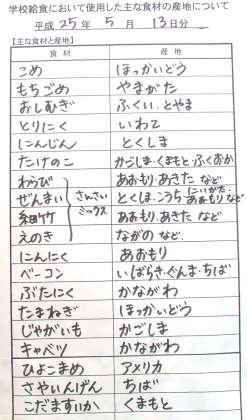 学校給食において使用した主な食材の産地について
平成 25 年 5 月 13 日分
【主な食材と産地】
食材 産地
こめ ほっかいどう
もちごめ やまがた
おしむぎ ふくい、とやま
とりにく いわて
にんじん とくしま
たけのこ かごしま・くまもと・ふくおか
わらび あおもり、あきた など
ぜんまい さんさい とくしま・こうち (にいがた・
細竹 ミックス あおもり など
あおもり、あきた など
えのき ながの など、
にんにく あおもり
ベーコン いばらき・ぐんま・ちば
ぶたにく かながわ
たまねぎ ほっかいどう
じゃがいも かごしま
キャベツ かながわ
ひよこまめ アメリカ
さやいんげん ちば
こだますいか くまもと